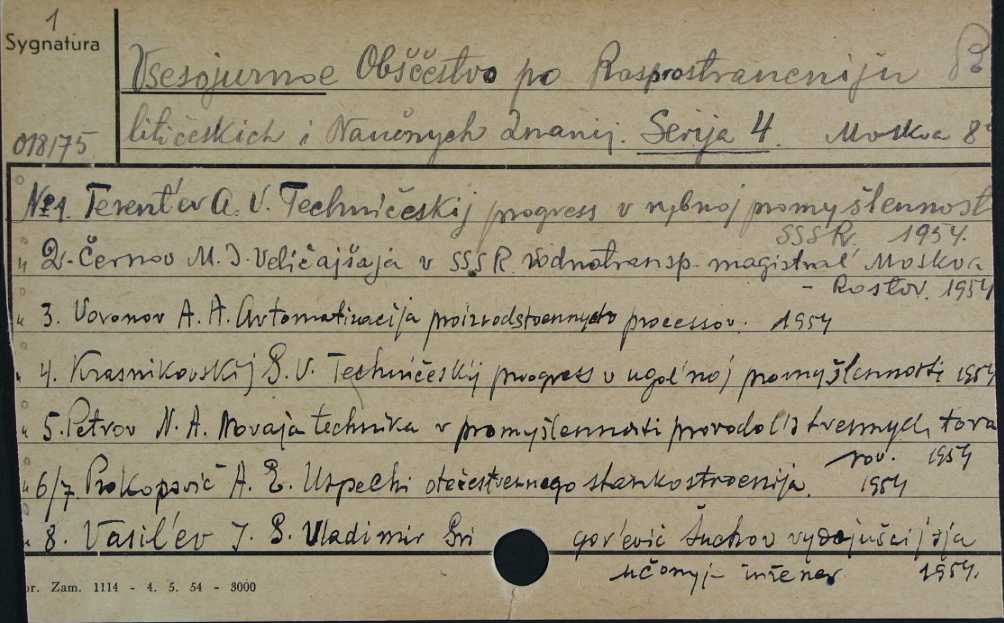 1
Sygnatura
018175
Vsesojuznoe Obščestvo po Rasprostraneniju Po
litičeskich i Naučnych Znanij. Serija 4. Moskva 8°
№1. Terent'ev A. V. Techničeskij progress v rybnoj promyšlennost
SSSR. 1954.
" 2. Černov M. I. Veličajšaja v SSSR vodnotransp. magistral' Moskva
- Rostov. 1954
" 3. Voronov A. A. Avtomatizacija proizvodstvennych processov. 1954
" 4. Krasnikovskij G. V. Techničeskij progress v ugol'noj promyšlennosti 1954
" 5. Petrov N. A. Novaja technika v promyšlennosti tova
rov. 1954
" 6/7 Prokopovič A. E. Uspechi otečestvennego stankostroenija. 1954
" 8. Vasil'ev I. G. Vladimir Gri gor'evič Šuchov
učonyj inžener 1954.
or. Zam. 1114 - 4. 5. 54 - 3000